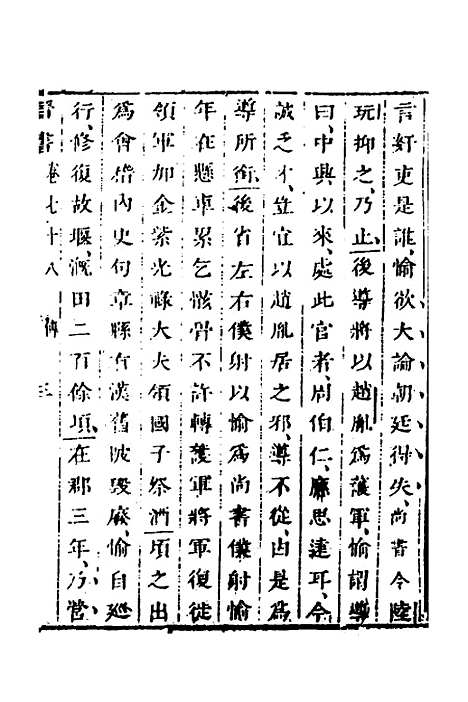 言奸吏是誰、愉欲大論朝廷得失、尚書令陸
玩抑之、乃止、後導將以趙胤爲護軍、愉謂導
曰、中興以來、處此官者、周伯仁、應思遠耳、今
誠乏才、豈宜以趙胤居之邪、導不從、由是爲
導所銜、後省左右僕射以愉爲尚書僕射愉
年在懸車累乞骸骨不許轉護軍將軍復徙
領軍加金紫光祿大夫領國子祭酒頃之出
爲會稽內史句章縣有漢舊陂毀廢、愉自巡
行、修復故堰、溉田二百餘頃、在郡三年、乃營
晉書卷七十八 傳 三